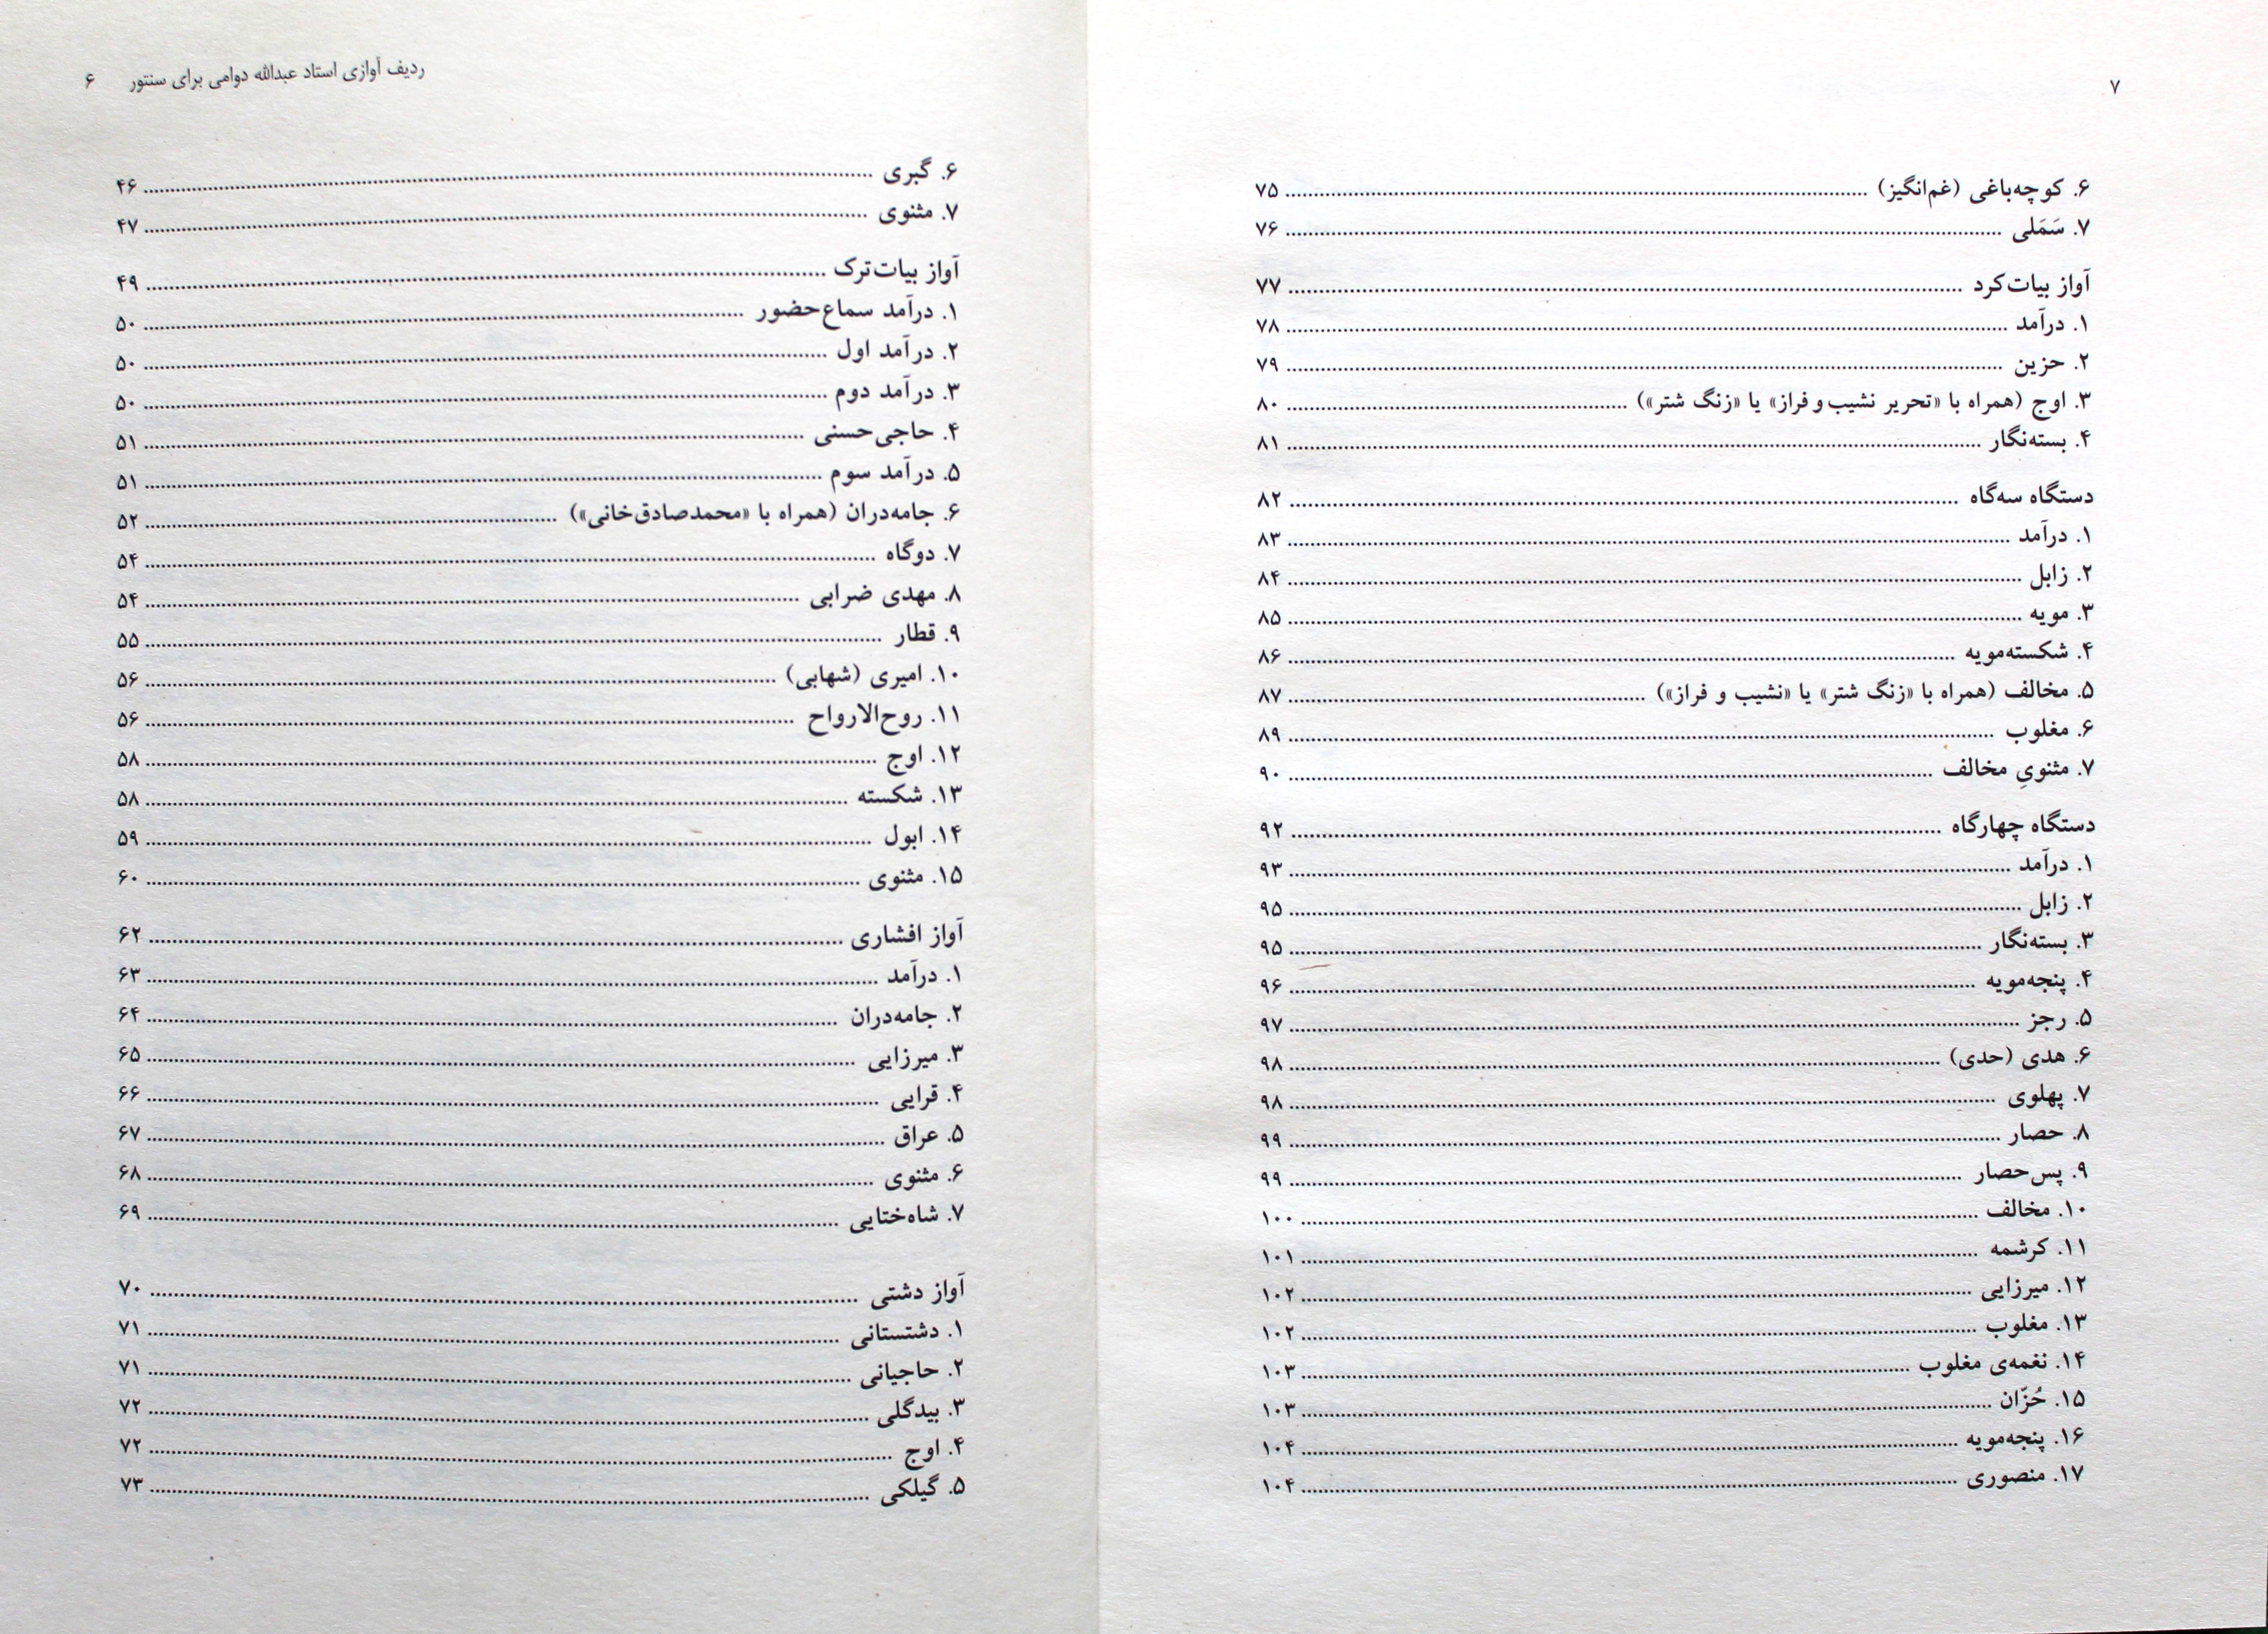 ردیف آوازی استاد عبدالله دوامی برای سنتور ۶
۶. گبری ........ ۴۶
۷. مثنوی ........ ۴۷
آواز بیات‌ترک ........ ۴۹
۱. درآمد سماع‌حضور ........ ۵۰
۲. درآمد اول ........ ۵۰
۳. درآمد دوم ........ ۵۰
۴. حاجی‌حسنی ........ ۵۱
۵. درآمد سوم ........ ۵۱
۶. جامه‌دران (همراه با «محمدصادق‌خانی») ........ ۵۲
۷. دوگاه ........ ۵۴
۸. مهدی ضرابی ........ ۵۴
۹. قطار ........ ۵۵
۱۰. امیری (شهابی) ........ ۵۶
۱۱. روح‌الارواح ........ ۵۶
۱۲. اوج ........ ۵۸
۱۳. شکسته ........ ۵۸
۱۴. ابول ........ ۵۹
۱۵. مثنوی ........ ۶۰
آواز افشاری ........ ۶۲
۱. درآمد ........ ۶۳
۲. جامه‌دران ........ ۶۴
۳. میرزایی ........ ۶۵
۴. قرایی ........ ۶۶
۵. عراق ........ ۶۷
۶. مثنوی ........ ۶۸
۷. شاه‌ختایی ........ ۶۹
آواز دشتی ........ ۷۰
۱. دشتستانی ........ ۷۱
۲. حاجیانی ........ ۷۱
۳. بیدگلی ........ ۷۲
۴. اوج ........ ۷۲
۵. گیلکی ........ ۷۳
۷
۶. کوچه‌باغی (غم‌انگیز) ........ ۷۵
۷. سَمَلی ........ ۷۶
آواز بیات‌کرد ........ ۷۷
۱. درآمد ........ ۷۸
۲. حزین ........ ۷۹
۳. اوج (همراه با «تحریر نشیب و فراز» یا «زنگ شتر») ........ ۸۰
۴. بسته‌نگار ........ ۸۱
دستگاه سه‌گاه ........ ۸۲
۱. درآمد ........ ۸۳
۲. زابل ........ ۸۴
۳. مویه ........ ۸۵
۴. شکسته‌مویه ........ ۸۶
۵. مخالف (همراه با «زنگ شتر» یا «نشیب و فراز») ........ ۸۷
۶. مغلوب ........ ۸۹
۷. مثنویِ مخالف ........ ۹۰
دستگاه چهارگاه ........ ۹۲
۱. درآمد ........ ۹۳
۲. زابل ........ ۹۵
۳. بسته‌نگار ........ ۹۵
۴. پنجه‌مویه ........ ۹۶
۵. رجز ........ ۹۷
۶. هدی (حدی) ........ ۹۸
۷. پهلوی ........ ۹۸
۸. حصار ........ ۹۹
۹. پس‌حصار ........ ۹۹
۱۰. مخالف ........ ۱۰۰
۱۱. کرشمه ........ ۱۰۱
۱۲. میرزایی ........ ۱۰۲
۱۳. مغلوب ........ ۱۰۲
۱۴. نغمه‌ی مغلوب ........ ۱۰۳
۱۵. حُزّان ........ ۱۰۳
۱۶. پنجه‌مویه ........ ۱۰۴
۱۷. منصوری ........ ۱۰۴